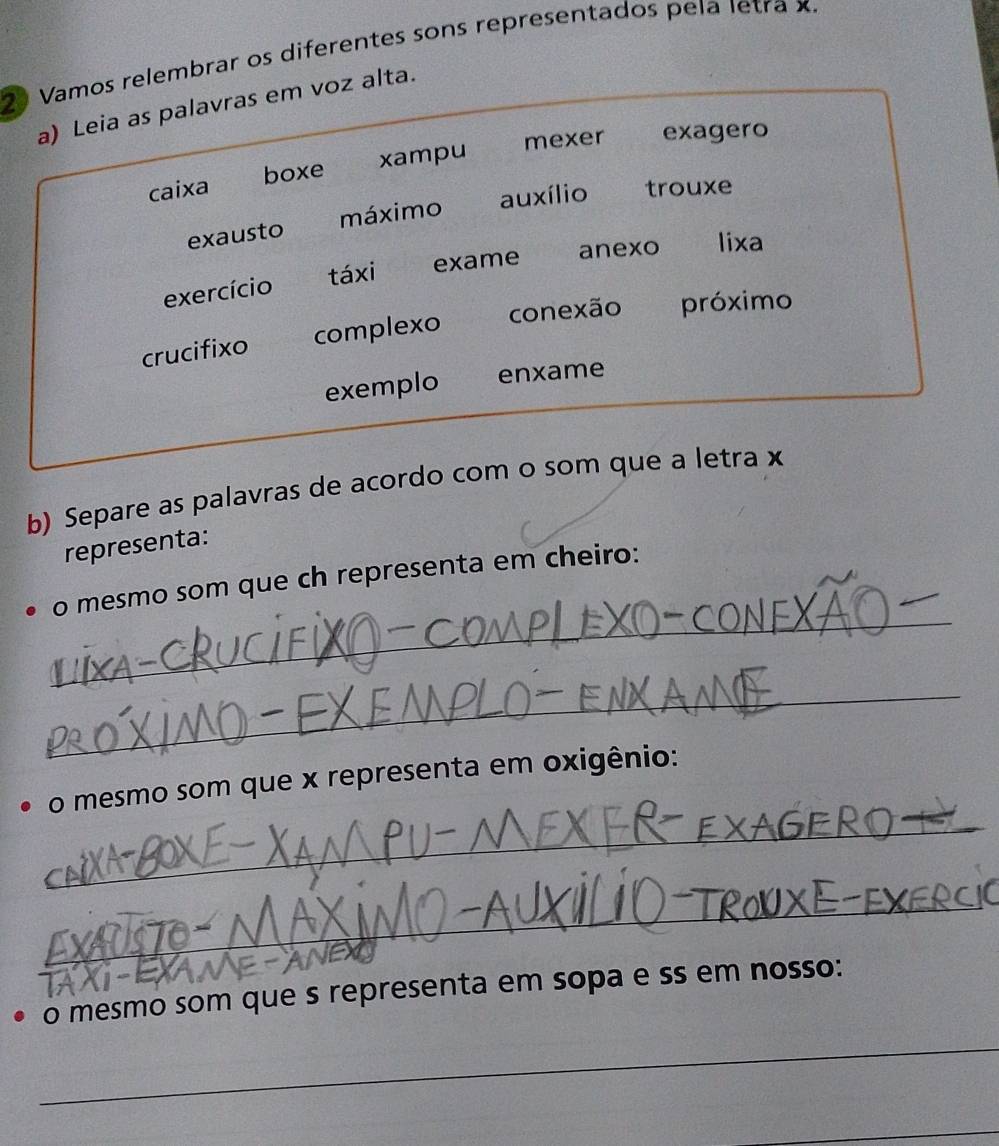 2 Vamos relembrar os diferentes sons representados pela letra x.
a) Leia as palavras em voz alta.
caixa boxe xampu mexer exagero
exausto máximo auxílio trouxe
exercício táxi exame anexo lixa
crucifixo complexo conexão próximo
exemplo enxame
b) Separe as palavras de acordo com o som que a letra x
representa:
• o mesmo som que ch representa em cheiro:
LIXA-CRUCIFIXO-COMPLEXO-CONEXÃO-
PRÓXIMO-EXEMPLO-ENXAME
• o mesmo som que x representa em oxigênio:
CAIXA-BOXE-XAMPU-MEXER-EXAGERO-
EXAUSTO-MAXIMO-AUXILIO-TROUXE-EXERCIC
TÁXI-EXAME-ANEXO
• o mesmo som que s representa em sopa e ss em nosso: